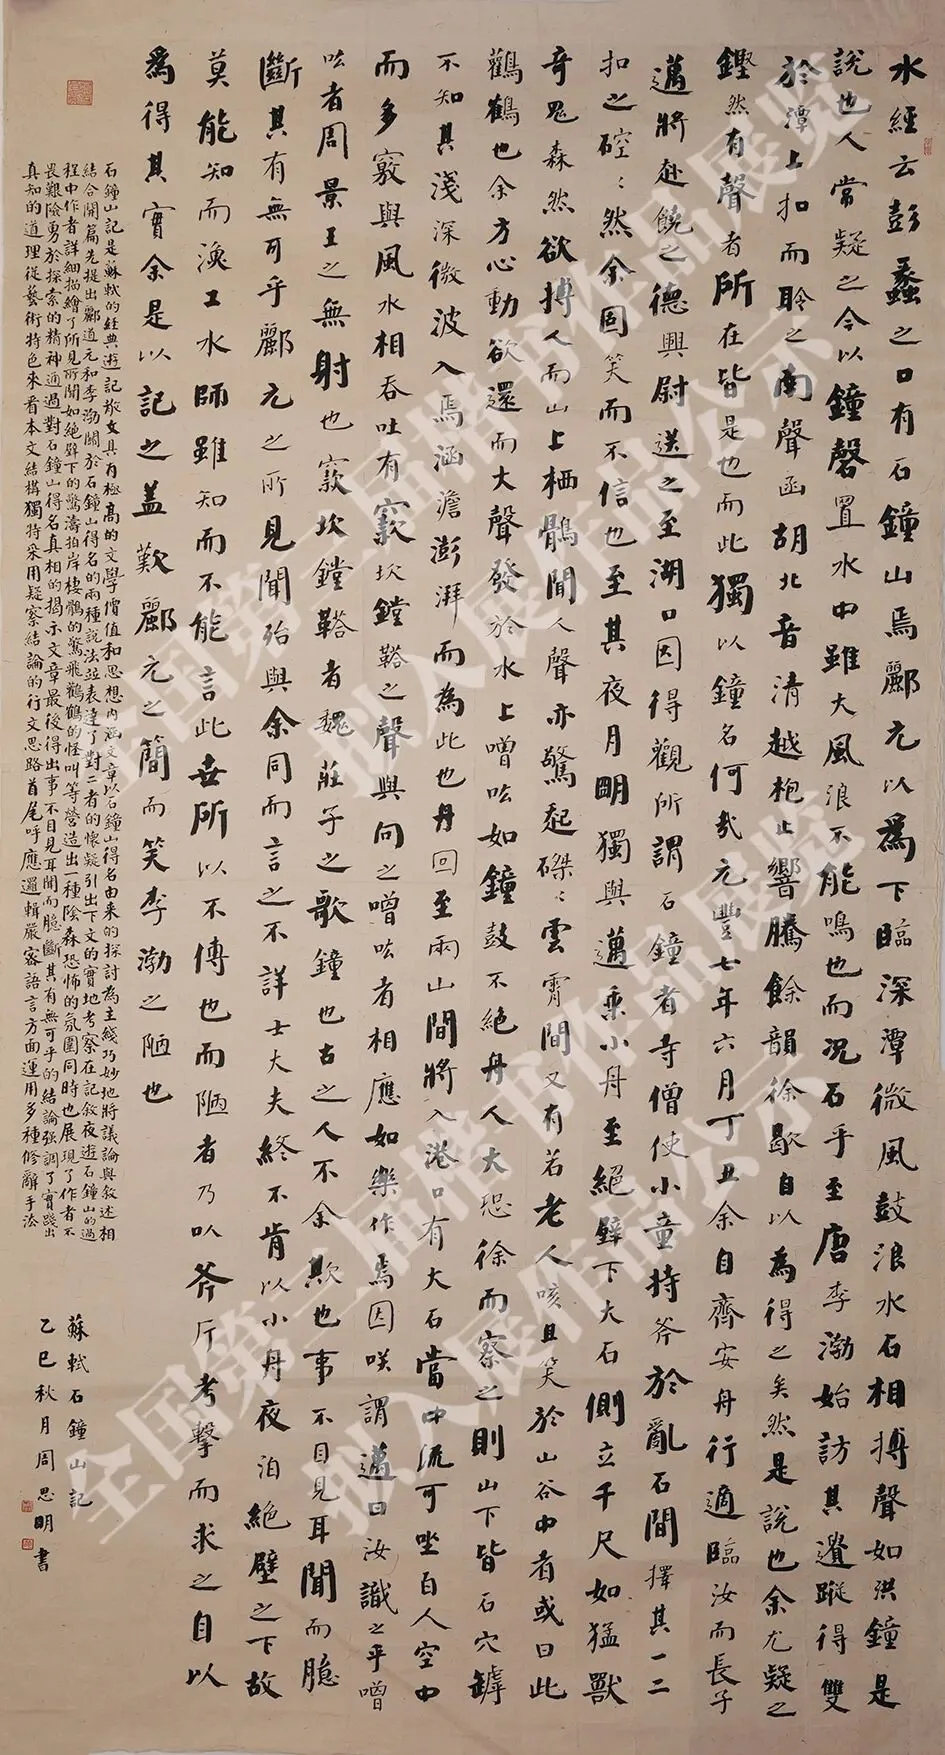 水經云彭蠡之口有石鐘山焉酈元以為下臨深潭微風鼓浪水石相搏聲如洪鐘是
說也人常疑之今以鐘磬置水中雖大風浪不能鳴也而況石乎至唐李渤始訪其遺蹤得雙
於潭上扣而聆之南聲函胡北音清越枹止響騰餘韻徐歇自以為得之矣然是說也余尤疑之
鏗然有聲者所在皆是也而此獨以鐘名何哉元豐七年六月丁丑余自齊安舟行適臨汝而長子
邁將赴饒之德興尉送之至湖口因得觀所謂石鐘者寺僧使小童持斧於亂石間擇其一二
扣之硿〻然余固笑而不信也至其夜月明獨與邁乘小舟至絕壁下大石側立千尺如猛獸
奇鬼森然欲搏人而山上栖鶻聞人聲亦驚起磔〻雲霄間又有若老人咳且笑於山谷中者或曰此
鸛鶴也余方心動欲還而大聲發於水上噌吰如鐘鼓不絕舟人大恐徐而察之則山下皆石穴罅
不知其淺深微波入焉涵澹澎湃而為此也舟回至兩山間將入港口有大石當中流可坐百人空中
而多竅與風水相吞吐有窾坎鏜鞳之聲與向之噌吰者相應如樂作焉因咲謂邁曰汝識之乎噌
吰者周景王之無射也窾坎鏜鞳者魏莊子之歌鐘也古之人不余欺也事不目見耳聞而臆
斷其有無可乎酈元之所見聞殆與余同而言之不詳士大夫終不肯以小舟夜泊絕壁之下故
莫能知而漁工水師雖知而不能言此世所以不傳也而陋者乃以斧斤考擊而求之自以
為得其實余是以記之蓋歎酈元之簡而笑李渤之陋也
石鐘山記是蘇軾的經典遊記散文具有極高的文學價值和思想内涵文章以石鐘山得名由来的探討為主綫巧妙地將議論與敘述相
結合開篇先提出酈道元和李渤關於石鐘山得名的兩種説法並表達了對二者的懷疑引出下文的實地考察在記敘夜遊石鐘山的過
程中作者詳細描繪了所見所聞如絕壁下的驚濤拍岸棲鶻的驚飛鸛鶴的怪叫等營造出一種陰森恐怖的氛圍同時也展現了作者不
畏艱險勇於探索的精神通過對石鐘山得名真相的揭示文章最後得出事不目見耳聞而臆斷其有無可乎的結論强調了實踐出
真知的道理從藝術特色來看本文結構獨特采用疑察結論的行文思路首尾呼應邏輯嚴密語言方面運用多種修辭手法
蘇軾石鐘山記
乙巳秋月周思明書
全国第三届楷书作品展览
拟入展作品公示
全国第三届楷书作品展览
拟入展作品公示